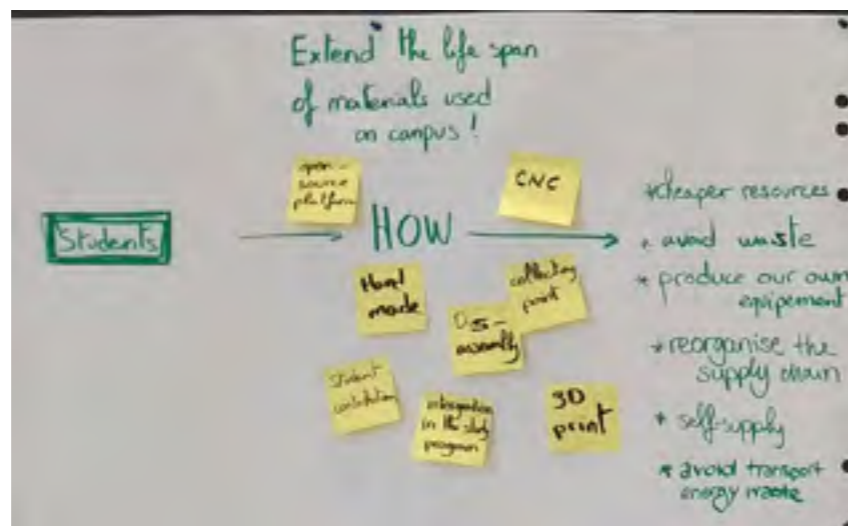 Extend the life span
of materials used
on campus!
open-
source
platform
CNC
Students
HOW
Hand
made
collecting
point
assembly
Student
integration
in the study
program
3D
print
*cheaper resources
* avoid waste
* produce our own
equipement
*reorganise the
supply chain
* self-supply
* avoid transport
energy waste